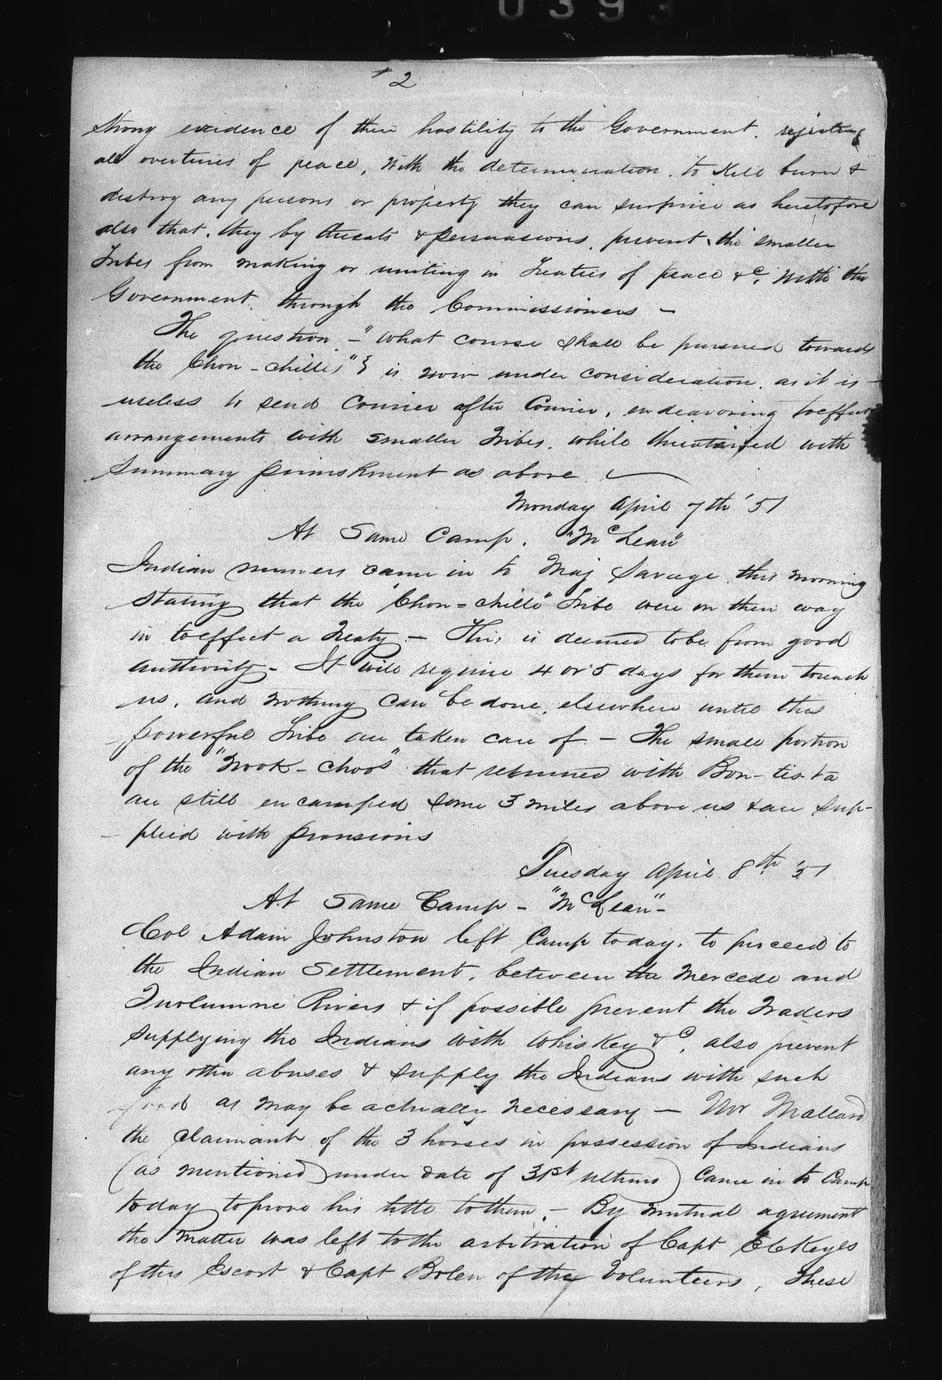 0393
2
strong evidence of their hostility to the Government, rejecting
all overtures of peace, with the determination, to kill burn &
destroy any persons or property they can surprise as heretofore
also that, they by threats & persuasions, prevent the smaller
Tribes from making or uniting in Treaties of peace &c, with the
Government, through the Commissioners —
The question — "what course shall be pursued towards
the Chon-chillis"? is now under consideration, as it is
useless to send Courier after Courier, endeavoring to effect
arrangements with smaller Tribes, while threatened with
summary punishment as above.
Monday April 7th '51
At Same Camp, "McLean"
Indian runners came in to Maj Savage this morning
stating that the "Chon-chille" Tribe were on their way
in to effect a Treaty — This is deemed to be from good
authority — It will require 4 or 5 days for them to reach
us, and nothing can be done, elsewhere until this
powerful Tribe are taken care of — The small portion
of the "Nook-choos" that returned with Bon-tis-ta
are still encamped some 3 miles above us & are sup-
plied with provisions
Tuesday April 8th '51
At Same Camp — "McLean" —
Col Adam Johnston left Camp today, to proceed to
the Indian Settlement, between the Mercede and
Tuolumne Rivers & if possible prevent the Traders
supplying the Indians with Whiskey &c, also prevent
any other abuses & supply the Indians with such
food as may be actually necessary — Mr Mallard
the claimant of the 3 horses in possession of Indians
(as mentioned under date of 31st ultimo) came in to Camp
today to prove his title to them, — By mutual agreement
the matter was left to the arbitration of Capt E D Keyes
of this Escort & Capt Bolen of the Volunteers, These